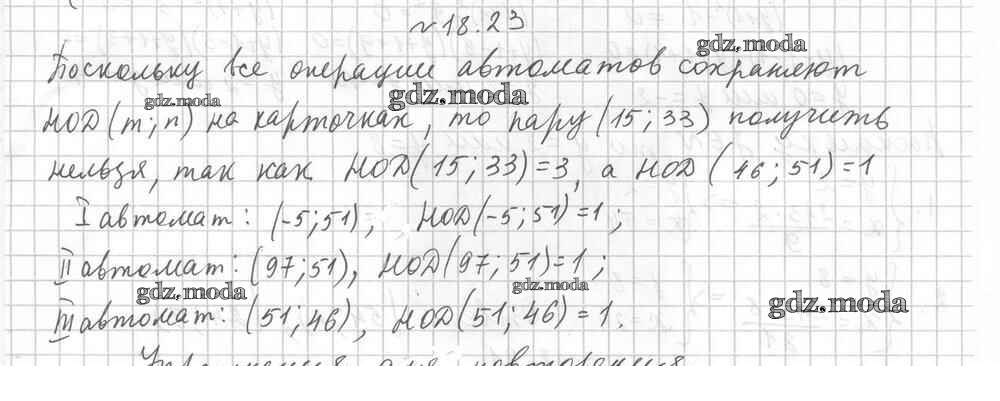 №18.23
Поскольку все операции автоматов сохраняют
НОД(m; n) на карточках, то пару (15; 33) получить
нельзя, так как НОД(15; 33)=3, а НОД (46; 51)=1
I автомат: (-5; 51), НОД(-5; 51)=1;
II автомат: (97; 51), НОД(97; 51)=1;
III автомат: (51; 46), НОД(51; 46)=1.
gdz.moda
gdz.moda
gdz.moda
gdz.moda
gdz.moda
gdz.moda